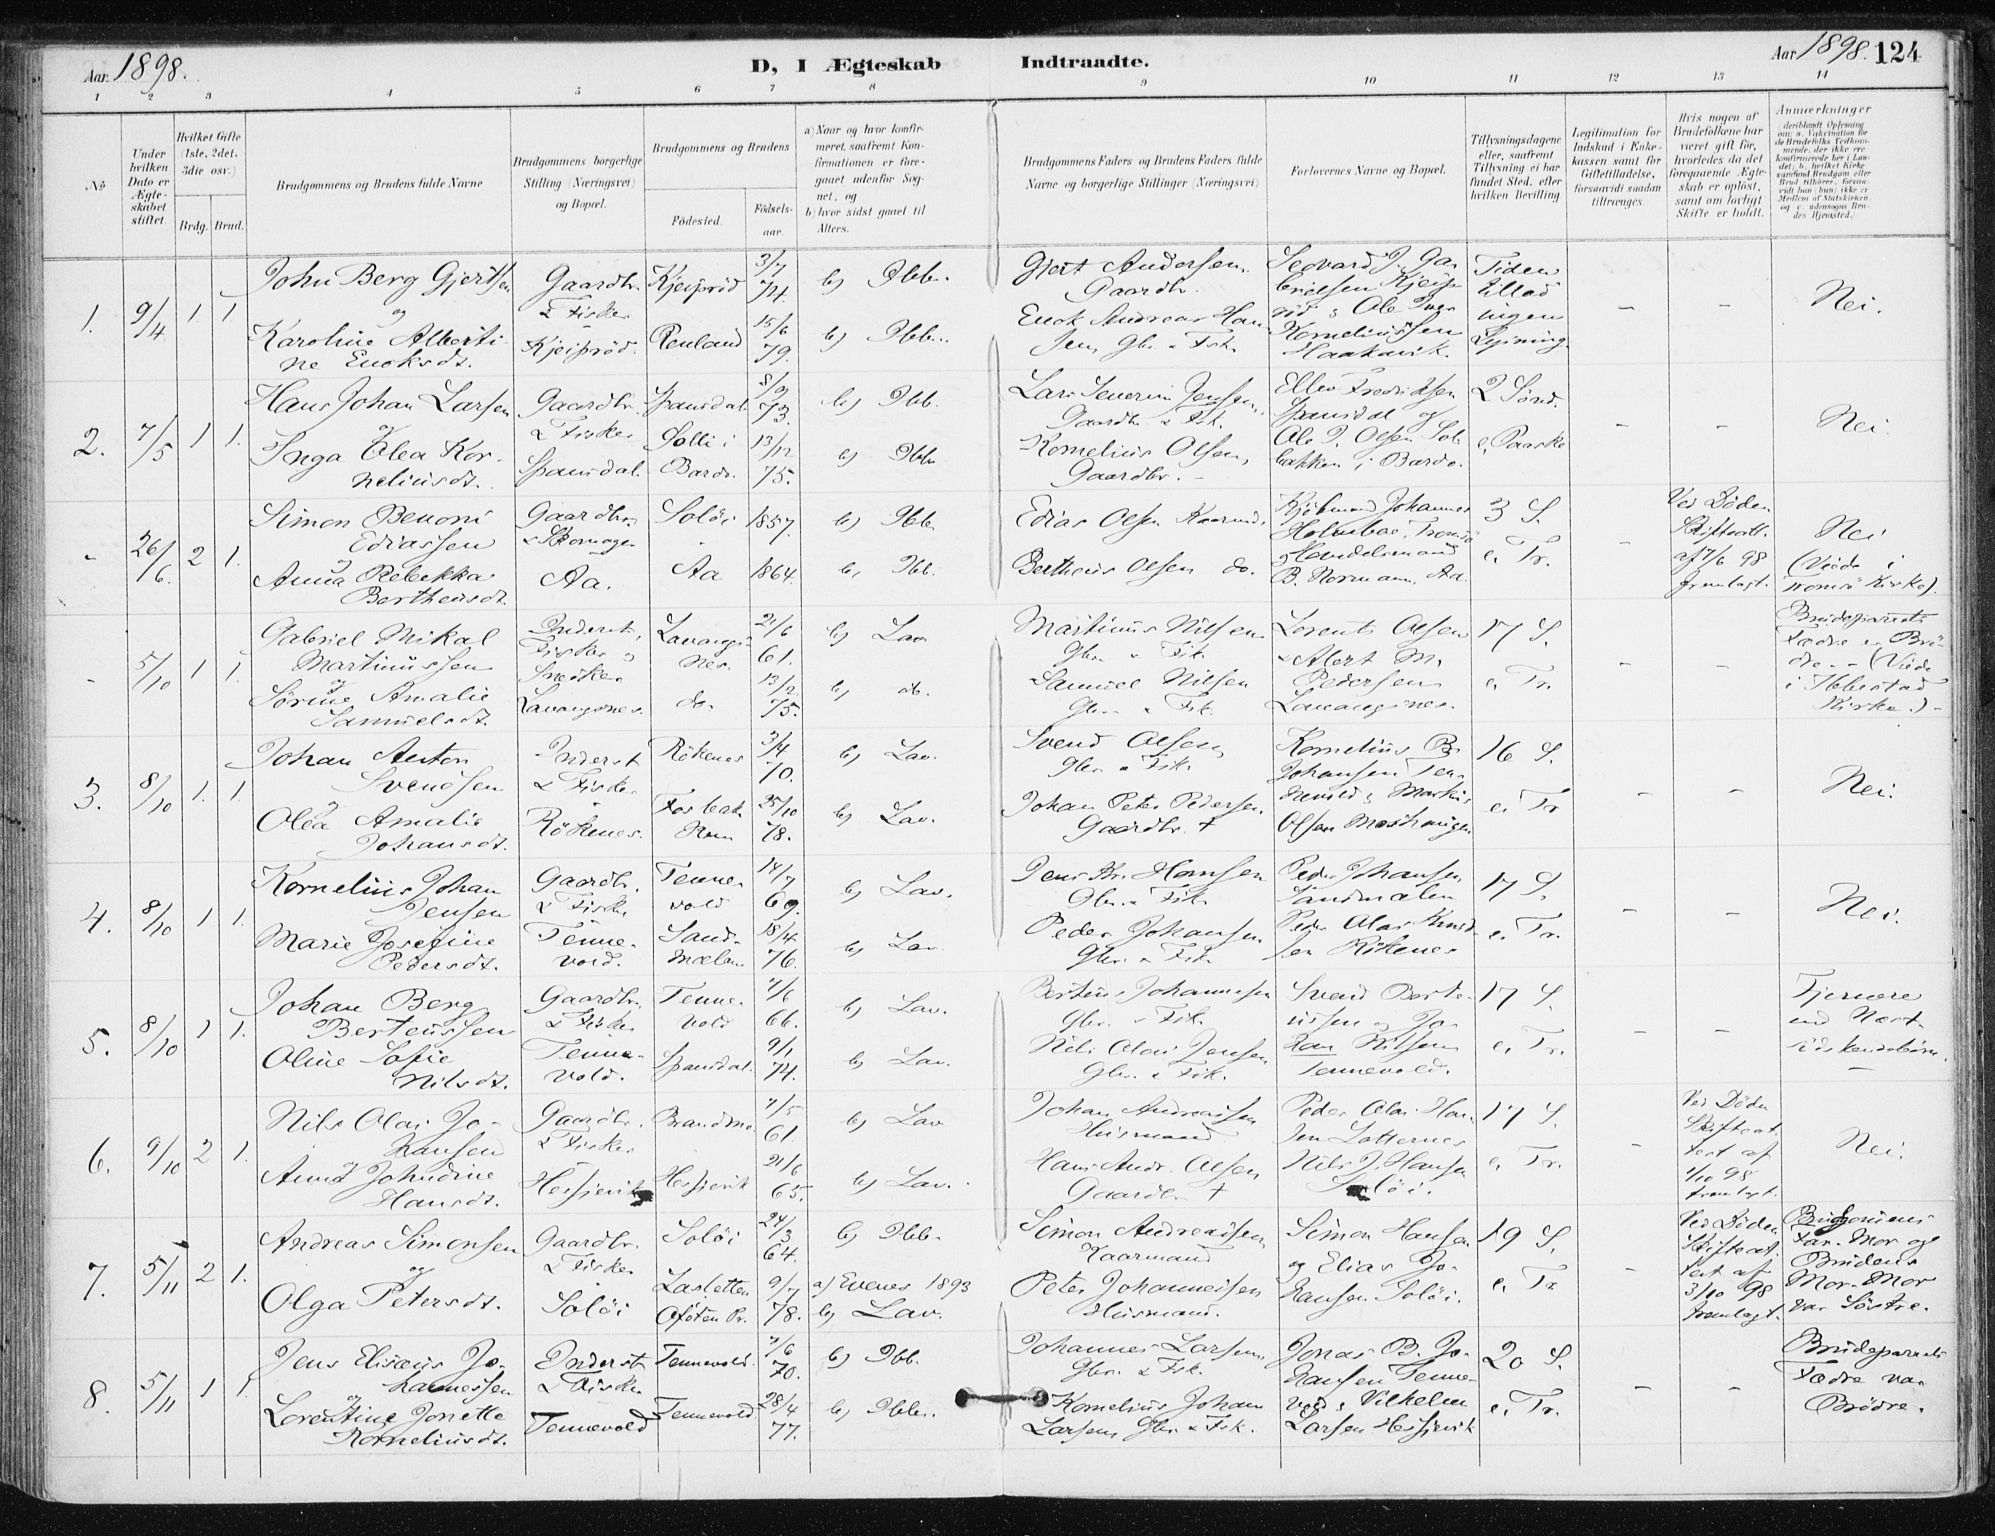 Aar 1898.
D, I Ægteskab Indtraadte.
Aar 1898. 124
1 2 3 4 5 6 7 8 9 10 11 12 13 14
No
Under hvilken Dato er Ægteskabet stiftet.
Hvilket Gifte (1ste, 2det, 3die osv.)
Brdg. Brud.
Brudgommens og Brudens fulde Navne
Brudgommens borgerlige Stilling (Næringsvei) og Bopæl.
Brudgommens og Brudens
Födested.
Födselsaar.
a) Naar og hvor konfirmeret, saafremt Konfirmationen er foregaaet udenfor Sognet, og
b) hvor sidst gaaet til Alters.
Brudgommens Faders og Brudens Faders fulde Navne og borgerlige Stillinger (Næringsvei)
Forlovernes Navne og Bopæl.
Tillysningsdagene eller, saafremt Tillysning ei har fundet Sted, efter hvilken Bevilling
Legitimation for Indskud i Enkekassen samt for Giftetilladelse, forsaavidt saadan tiltrænges.
Hvis nogen af Brudefolkene har været gift før, hvorledes da det foregaaende Ægteskab er oplöst, samt om lovligt Skifte er holdt.
Anmærkninger
1. 9/4 1. 1
John Berg Gjertsen
og
Karoline Albertine Enoksdt.
Gaardbr. & Fisker Kjeiprød.
Kjeiprød 3/7 74. b) Ibb.
Renland 15/6 79. b) Ibb.
Gjert Andersen, Gaardbr.
Enok Andreas Hansen, Gbr. & Fsk.
Kjeiprød & Ole Korneliussen Haakavik.
Uden
- - Nei.
2. 7/5 1 1.
Hans Johan Larsen
og
Inga Olea Korneliusdt.
Gaardbr. & Fisker Spansdal
Spansdal 8/9 73. b) Ibb.
Solli i Bardo. 13/12 75. b) Ibb
Lars Severin Jensen, Gaardbr. & Fsk.
Kornelius Olsen, Gaardbr.
Ellev Fredriksen Spansdal og Ole P. Olsen Solbakken i Bardo.
2 Sønd. e. Paaske
- - Nei.
- 26/6. 2 1.
Simon Benoni Ediassen
og
Anna Rebekka Bertheusdt.
Gaardbr. & Skomager Aa.
Soløi 1857. b) Ibb.
Aa 1864. b) Ibb.
Edias Olsen Kaarmd.
Bertheus Olsen do.
Kjøbmand Johannes Holmboe, Tromsø & Handelsmand B. Normann, Aa.
3 S. e. Tr.
-
Ved Döden Skifteatt. af 7/6 98 fremlagt.
Nei (Viede i Tromsö Kirke).
- 5/10 1 1.
Gabriel Mikal Martinussen
og
Sørine Amalie Samuelsdt.
Inderst, Fisker og Snedker Lavangsnes.
Lavangsnes. 21/6 61. b) Lav
do. 13/2 75. b) do.
Martinus Nilsen Gbr. & Fsk.
Samuel Nilsen Gbr. & Fsk.
Lorents Olsen & Albert M. Pedersen Lavangsnes.
17 S. e. Tr.
- -
Brudeparrets Fædre er Brödre. - (Viede i Ibbestad Kirke.) -
3. 8/10 1. 1.
Johan Anton Svendsen
og
Olea Amalie Johansdt.
Inderst & Fisker Rökenes.
Rökenes 3/4 70. b) Lav.
Fosbakken 25/10 78. b) Lav.
Svend Olsen Gbr. & Fsk.
Johan Peter Pedersen Gaardbr. †
Kornelius B. Johansen Tennevold & Markus Olsen
16 S. e. Tr
- - Nei.
4. 8/10 1 1.
Kornelius Johan Jensen
Marie Josefine Pedersdt.
Gaardbr. & Fisker Tennevold.
Tennevold 14/7 69. b) Lav.
Sandmælen 18/4 76. b) Lav
Jens Kr. Hansen Gbr. & Fsk.
Peder Johansen Gbr. & Fsk.
Peder Johansen Sandmælen
Peder Olai Knudsen Rökenes
17 S. e. Tr.
- - Nei.
5. 8/10 1 1.
Johan Berg Berteussen
Oline Sofie Nilsdt.
Gaardbr. & Fisker Tennevold.
Tennevold 7/6 66. b) Lav.
Spansdal. 9/1 74. b) Lav.
Berteus Johannesen Gbr. & Fsk.
Nils Olai Jensen Gbr. & Fsk.
Svend Berteussen og Johan Nilsen Tennevold.
17 S. e. Tr.
- -
Fjernere end Næstsödskendebörn. -
6. 9/10 2 1.
Nils Olai Johansen
og
Anna Johndine Hansdt.
Gaardbr. & Fisker Hesjevik
Brandmo 7/5 61. b) Lav
Hesjevik 21/6 65. b) Lav.
Johan Andreassen Husmand
Hans Andr. Olsen Gaardbr. †
Peder Olai Hansen
Nils J. Hansen Soløi.
17 S. e. Tr.
-
Ved Döden Skifteattest af 1/10 98 fremlagt.
Nei.
7. 5/11 2 1.
Andreas Simonsen
og
Olga Petersdt.
Gaardbr. & Fisker Soløi
Soløi 24/3 64. b) Ibb.
Ofoten Pr. 9/7 78. a) Evenes 1893 b) Lav.
Simon Andreassen Kaarmand
Peter Johannessen Husmand.
Simon Hansen og Elias Johansen Soløi.
19 S. e. Tr
-
Ved Döden Skifteattest af 3/10 98 fremlagt.
Brudgommens Far-Mor og Brudens Mor-Mor var Söstre.
8. 5/11 1 1.
Jens Elisæus Johannessen
og
Lorentine Jonette Korneliusdt.
Inderst & Fisker Tennevold
Tennevold. 7/6 70. b) Ibb.
Tennevold. 28/4 77. b) Ibb.
Johannes Larsen, Gbr. & Fsk.
Kornelius Johan Larsen Gbr. & Fsk.
Jonas B. Johansen Tennevold & Vilhelm Larsen Hesjevik
20 S. e. Tr.
- -
Brudeparrets Fædre var Brödre.